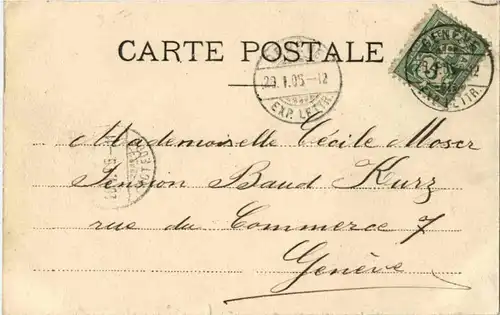 CARTE POSTALE
GENÈVE
29.1.05-12
EXP. LETTR.
EXP. LETTR.
Mademoiselle Cécile Moser
Pension Baud Kurz
rue du Commerce 7
Genève